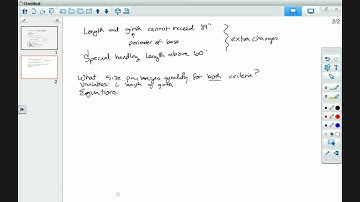 Untitled
2/2
Length and girth cannot exceed 84"
perimeter of base
extra charges
Special handling length above 60"
What size packages qualify for both criteria?
Variables: length girth
Equations:
1
2